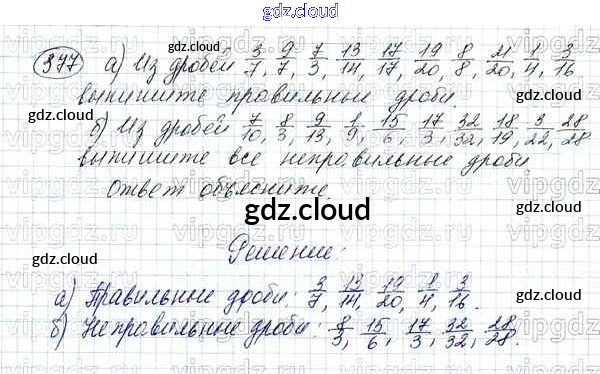 gdz.cloud
377 а) Из дробей 3/7, 9/7, 7/3, 13/14, 17/17, 19/20, 8/8, 21/20, 1/4, 3/16
выпишите правильные дроби.
б) Из дробей 7/10, 8/3, 9/13, 1/9, 15/6, 17/3, 32/32, 18/19, 3/22, 28/28
выпишите все неправильные дроби
Ответ объясните.
gdz.cloud
Решение:
а) Правильные дроби: 3/7, 13/14, 19/20, 1/4, 3/16.
б) Неправильные дроби: 8/3, 15/6, 17/3, 32/32, 28/28.